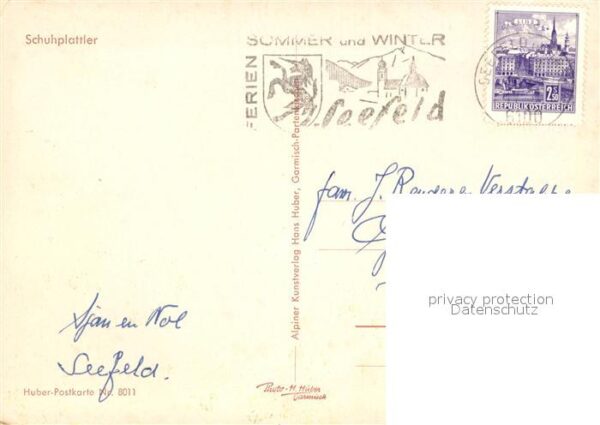 Schuhplattler
FERIEN
SOMMER und WINTER
Seefeld
LINZ
2.50
REPUBLIK ÖSTERREICH
Alpiner Kunstverlag Hans Huber, Garmisch-Partenkirchen
fam. J.
privacy protection
Datenschutz
Sjan en Nol
Seefeld.
Huber-Postkarte Nr. 8011
Photo-H. Huber
Garmisch